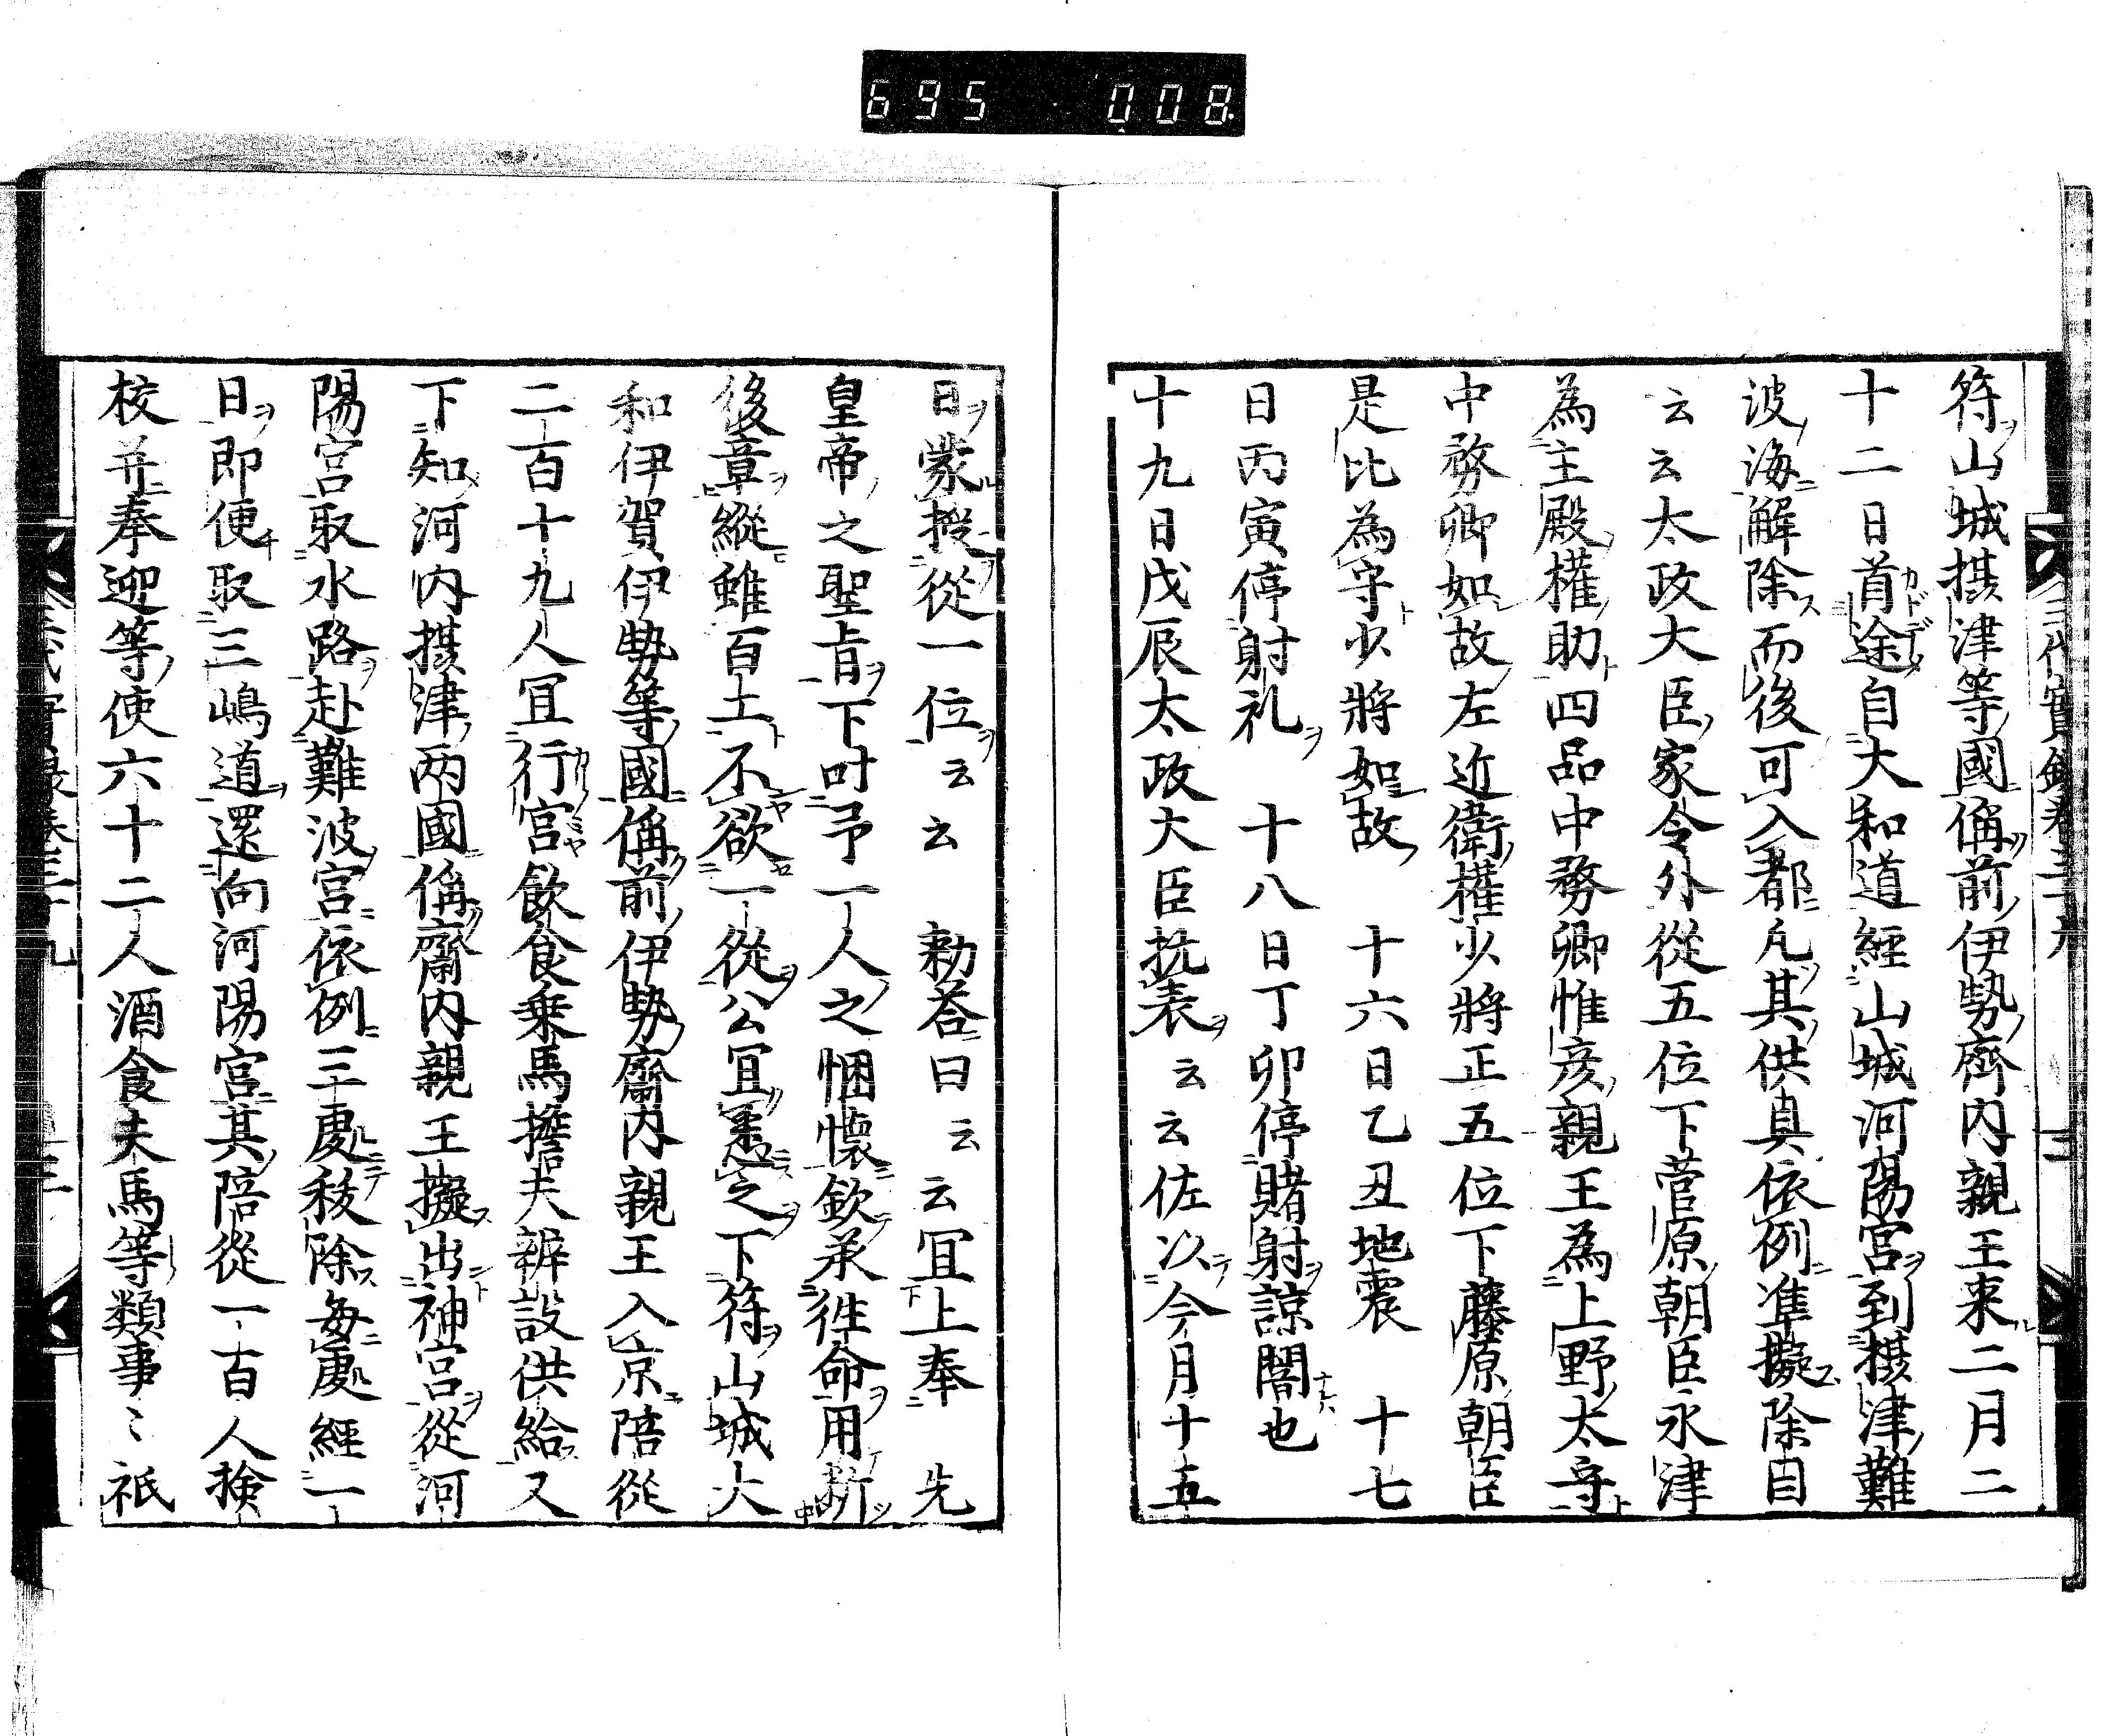 695 008
符山城摂津等國偁前伊勢齊内親王来二月二
十二日首途自大和道經山城河陽宮到摂津難
波海解除而後可入都凡其供具依例准擬除目
云云太政大臣家令外從五位下菅原朝臣永津
為主殿權助四品中務卿惟彦親王為上野太守
中務卿如故左近衛權少將正五位下藤原朝臣
是比為守少將如故　十六日乙丑地震　十七
日丙寅停射礼　十八日丁卯停賭射諒闇也
十九日戊辰太政大臣抗表云云佐以今月十五
日蒙授從一位云云　勅荅曰云云冝上奉　先
皇帝之聖旨下叶予一人之悃懐欽承徃命用斷
後章縱雖百上不欲一從公冝悉之下符山城大
和伊賀伊勢等國偁前伊勢齋内親王入京陪從
二百十九人冝行宮飲食乗馬擔夫辨設供給又
下知河内摂津両國偁齋内親王擬出神宮從河
陽宮取水路赴難波宮依例三處秡除毎處經一
日即便取三嶋道還向河陽宮其陪從一百人擡
校并奉迎等使六十二人酒食夫馬等類事〻祇